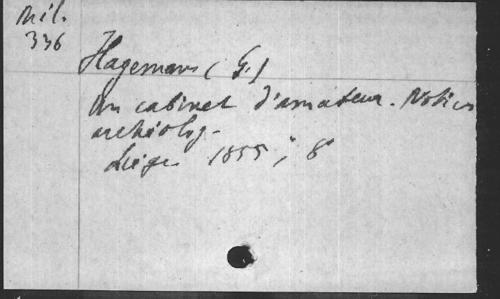 Mil.
336
Hagemans (G.)
Un cabinet d'amateur. Notices
archéolog.
Liège 1855, 8°